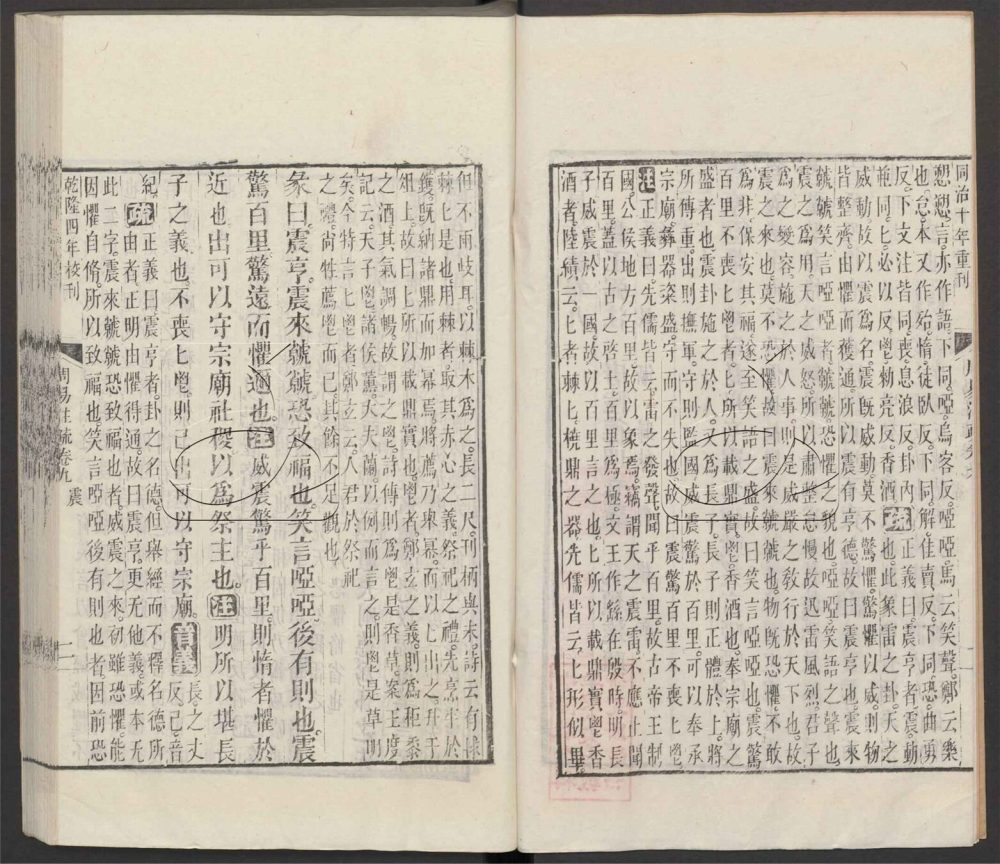 同治十年重刊
愬愬言亦作語下同啞烏客反啞馬云笑聲鄭云樂
也怠本又作殆惰徒臥反下同解佳賣反下同恐曲勇
反下文注皆同喪息浪反卦內
並同匕必以反鬯勑亮反香酒
疏
正義曰震亨者震動
也此象雷之卦天之
威動故以震為名震既威動莫不驚懼驚懼以威則物
皆整齊由懼而獲通所以震有亨德故曰震亨也震來
虩虩笑言啞啞者虩虩恐懼之貌也啞啞笑語之聲也
震之為用天之威怒所以肅整怠慢故迅雷風烈君子
為之變容施之於人事則是威嚴之教行於天下也故
震之來也莫不恐懼故曰震來虩虩也物既恐懼不敢
為非保安其福遂至笑語之盛故曰笑言啞啞也震驚
百里不喪匕鬯者匕所以載鼎實鬯香酒也奉宗廟之
盛者也震卦施之於人又為長子長子則正體於上將
所傳重出則撫軍守則監國威震驚於百里可以奉承
宗廟彝器粢盛守而不失也故曰震驚百里不喪匕鬯
注
正義曰先儒皆云雷之發聲聞乎百里故古帝王制
國公侯地方百里故以象焉竊謂天之震雷不應止聞
百里蓋以古之啟土百里為極文王作繇在殷時明長
子威震於一國故以百里言之也匕所以載鼎實鬯香
酒者陸績云匕者棘匕橈鼎之器先儒皆云匕形似畢
但不兩岐耳以棘木為之長二尺刊柄與末詩云有捄
棘匕是也用棘者取其赤心之義祭祀之禮先烹牢於
鑊既納諸鼎而加冪焉將薦乃舉冪而以匕出之升于
俎上故曰匕所以載鼎實也鬯者鄭玄之義則為秬黍
之酒其氣調暢故謂之鬯詩傳則為鬯是香草案王度
記云天子鬯諸侯薰大夫蘭以例而言之則鬯是草明
矣今特言匕鬯者鄭玄云人君於祭祀
之禮尚牲薦鬯而已其餘不足觀也
彖曰震亨震來虩虩恐致福也笑言啞啞後有則也震
驚百里驚遠而懼邇也
注
威震驚乎百里則惰者懼於
近也出可以守宗廟社稷以為祭主也
注
明所以堪長
子之義也不喪匕鬯則已出可以守宗廟
音義
長之丈
反己音
紀
疏
正義曰震亨者卦之名德但舉經而不釋名德所
由者正明由懼得通故曰震亨更无他義或本无
此二字震來虩虩恐致福也者威震之來初雖恐懼能
因懼自脩所以致福也笑言啞啞後有則也者因前恐
乾隆四年校刊
周易注疏卷九
震